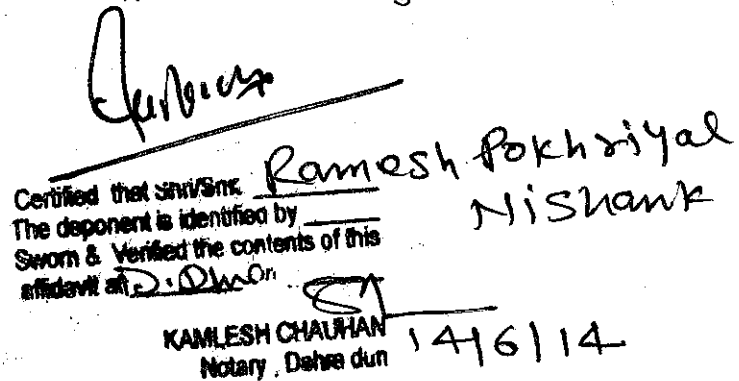 Certified that Shri/Smt. Ramesh Pokhriyal
Nishank
The deponent is identified by
Sworn & Verified the contents of this
affidavit at D.Dhn on
KAMLESH CHAUHAN
Notary, Dehra dun 14/6/14